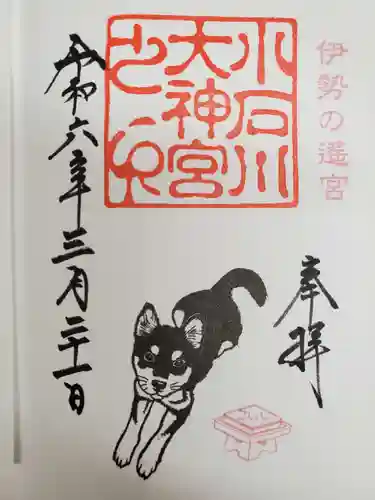 伊勢の遥宮
奉拝
小石川
大神宮
之印
令和六年三月二十一日